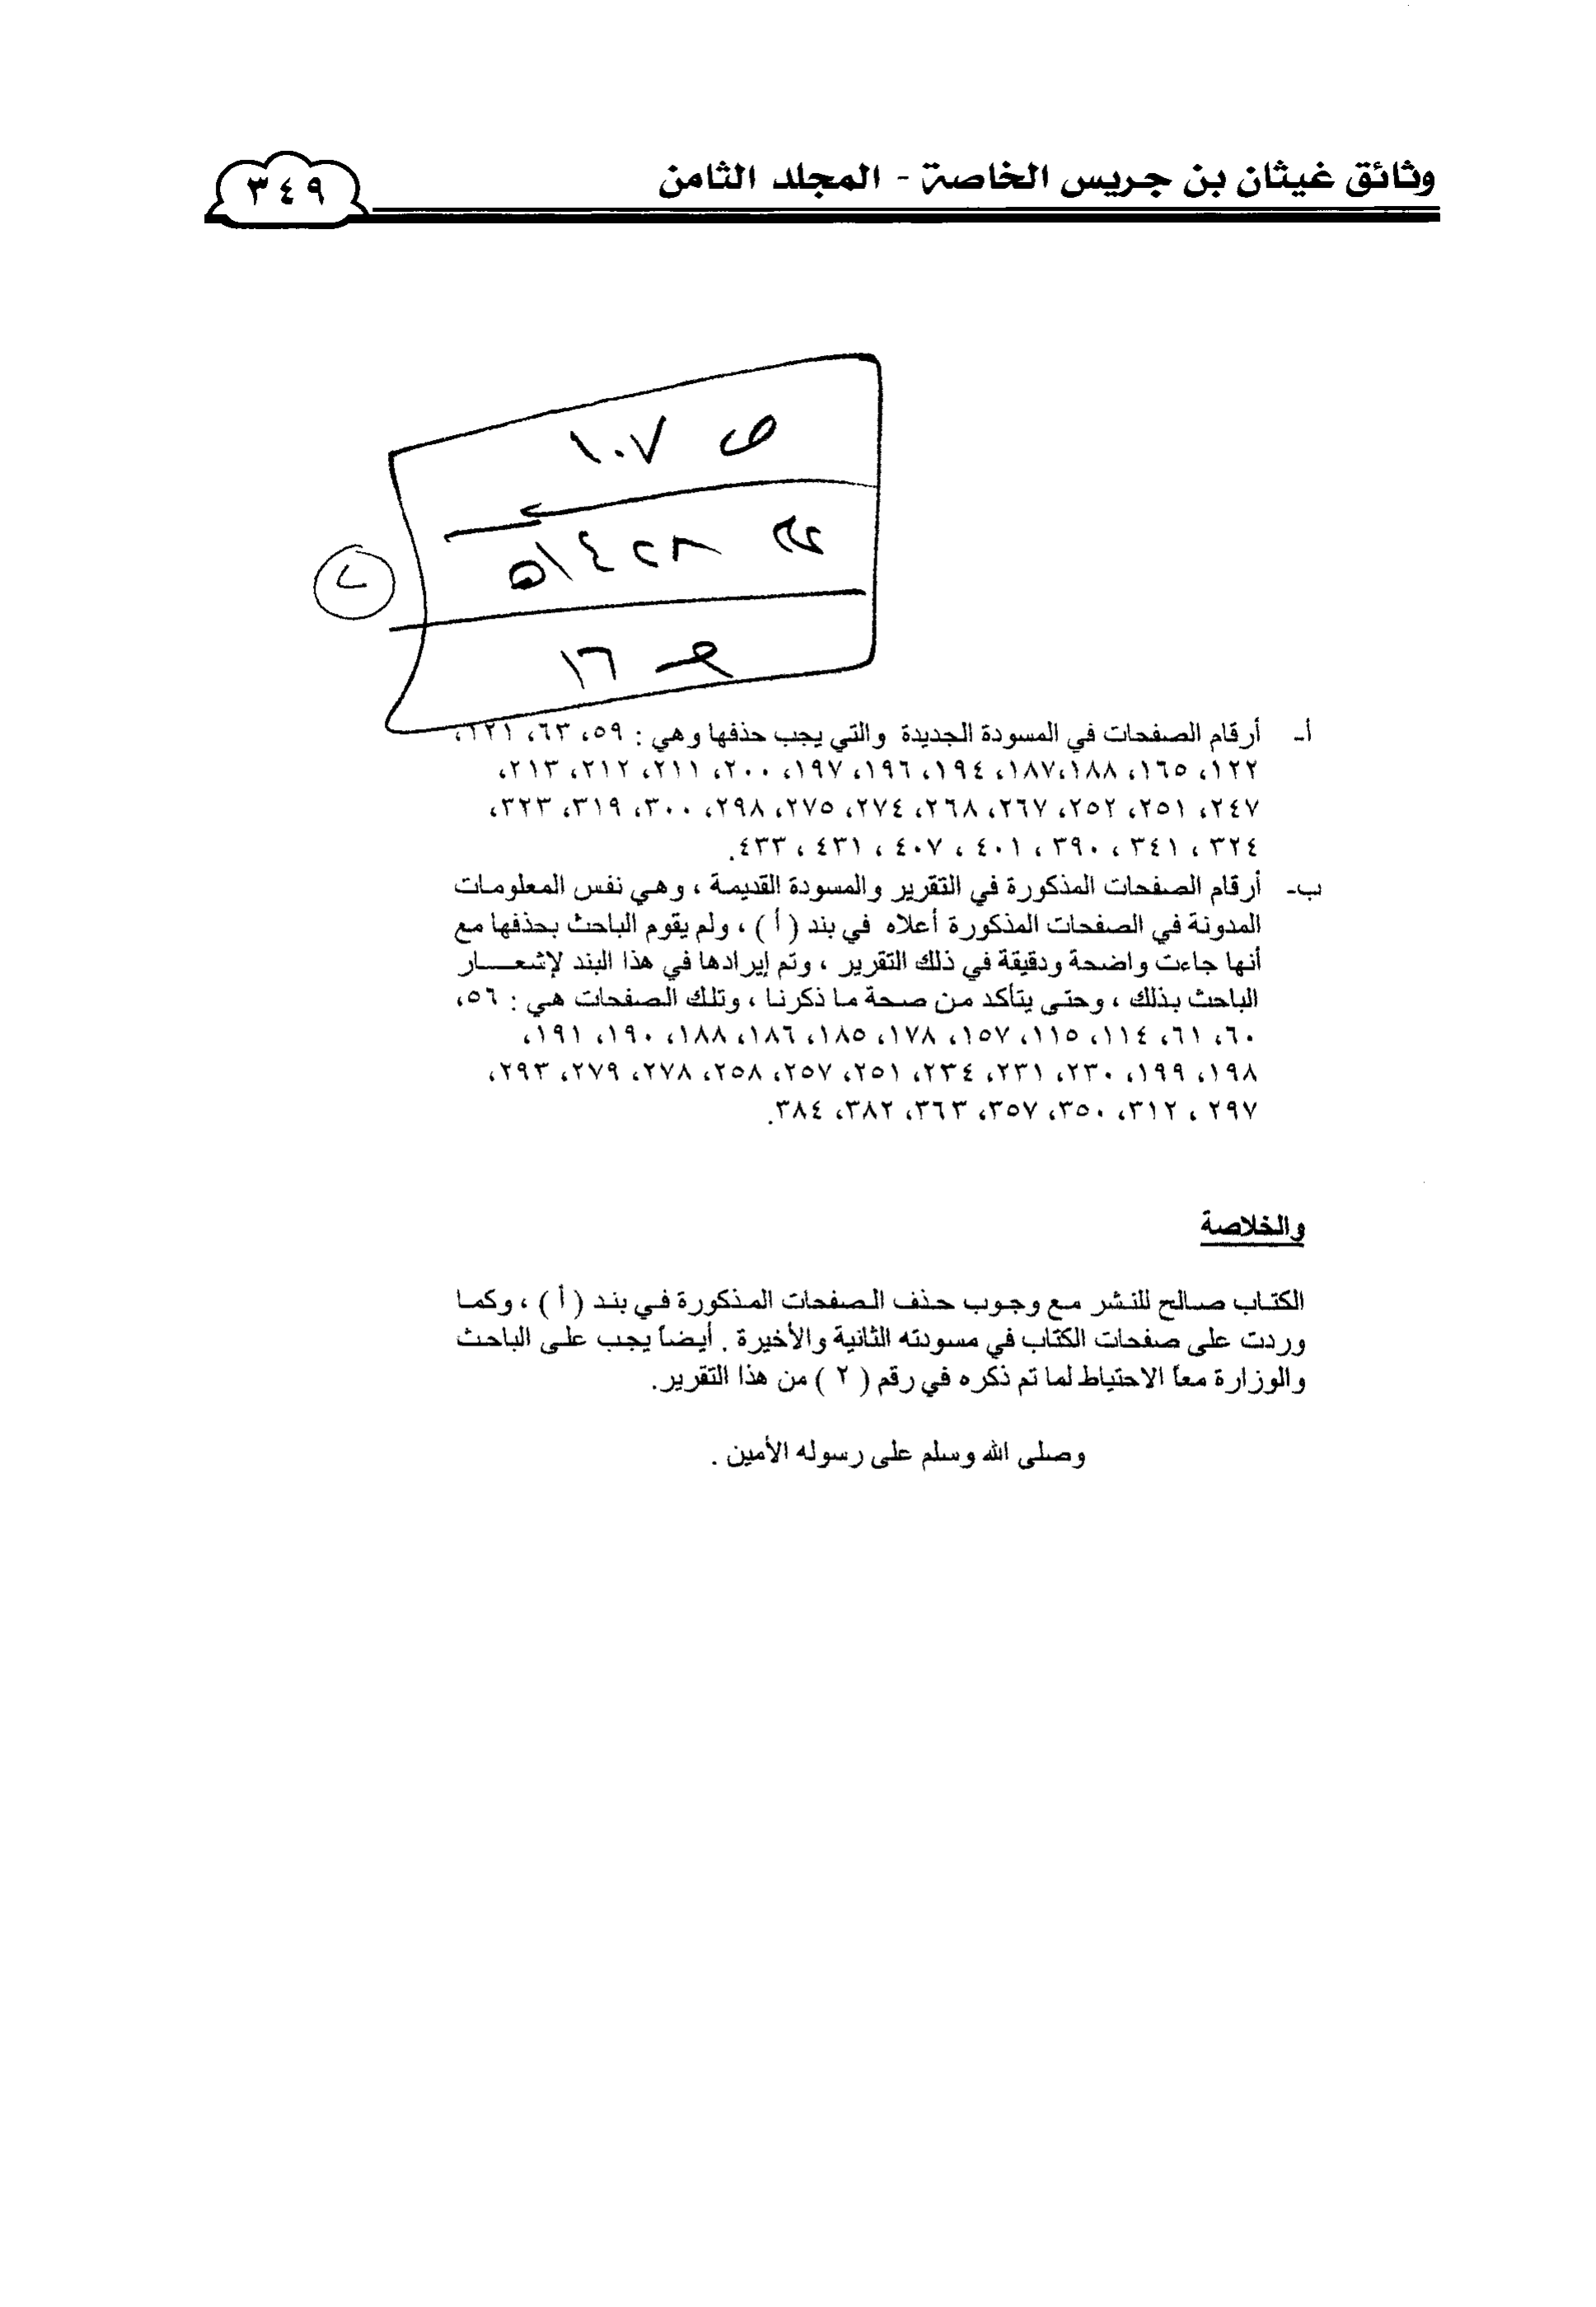 وثائق غيثان بن جريس الخاصة - المجلد الثامن
٣٤٩
ص ١٠٧
١٦
أ- أرقام الصفحات في المسودة الجديدة والتي يجب حذفها وهي : ٥٩، ٦٣،
١٢٢، ١٦٥، ١٨٨،١٨٧، ١٩٤، ١٩٦، ١٩٧، ٢٠٠، ٢١١، ٢١٢، ٢١٣،
٢٤٧، ٢٥١، ٢٥٢، ٢٦٧، ٢٦٨، ٢٧٤، ٢٧٥، ٢٩٨، ٣٠٠، ٣١٩، ٣٢٣،
٣٢٤ ، ٣٤١ ، ٣٩٠ ، ٤٠١ ، ٤٠٧ ، ٤٣١ ، ٤٣٣.
ب- أرقام الصفحات المذكورة في التقرير والمسودة القديمة ، وهي نفس المعلومات
المدونة في الصفحات المذكورة أعلاه في بند ( أ ) ، ولم يقوم الباحث بحذفها مع
أنها جاءت واضحة ودقيقة في ذلك التقرير ، وتم إيرادها في هذا البند لإشعار
الباحث بذلك ، وحتى يتأكد من صحة ما ذكرنا ، وتلك الصفحات هي : ٥٦،
٦٠، ٦١، ١١٤، ١١٥، ١٥٧، ١٧٨، ١٨٥، ١٨٦، ١٨٨، ١٩٠، ١٩١،
١٩٨، ١٩٩، ٢٣٠، ٢٣١، ٢٣٤، ٢٥١، ٢٥٧، ٢٥٨، ٢٧٨، ٢٧٩، ٢٩٣،
٢٩٧ ، ٣١٢، ٣٥٠، ٣٥٧، ٣٦٣، ٣٨٢، ٣٨٤.
والخلاصة
الكتاب صالح للنشر مع وجوب حذف الصفحات المذكورة في بند ( أ ) ، وكما
وردت على صفحات الكتاب في مسودته الثانية والأخيرة . أيضاً يجب على الباحث
والوزارة معاً الاحتياط لما تم ذكره في رقم ( ٢ ) من هذا التقرير.
وصلى الله وسلم على رسوله الأمين .